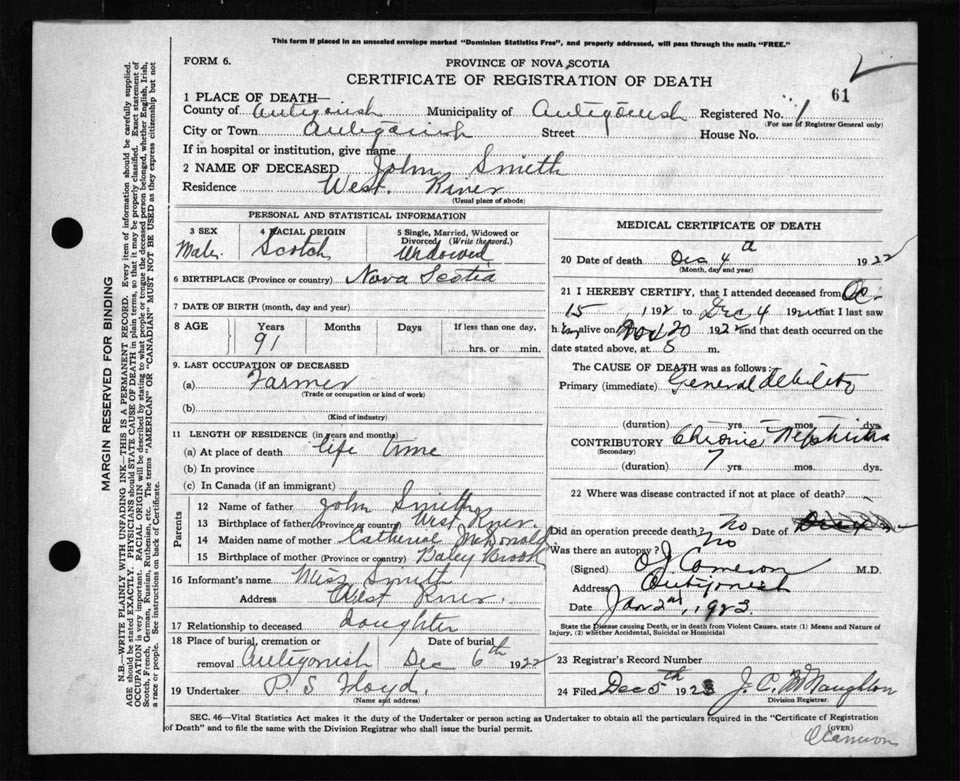 This form if placed in an unsealed envelope marked "Dominion Statistics Free", and properly addressed, will pass through the mails "FREE."
FORM 6.
PROVINCE OF NOVA SCOTIA
CERTIFICATE OF REGISTRATION OF DEATH
61
1 PLACE OF DEATH—
County of Antigonish Municipality of Antigonish Registered No. 1
(For use of Registrar General only)
City or Town Antigonish Street House No.
If in hospital or institution, give name
2 NAME OF DECEASED John Smith
Residence West River
(Usual place of abode)
PERSONAL AND STATISTICAL INFORMATION
3 SEX 4 RACIAL ORIGIN 5 Single, Married, Widowed or Divorced (Write the word.)
Male Scotch Widowed
6 BIRTHPLACE (Province or country) Nova Scotia
7 DATE OF BIRTH (month, day and year)
8 AGE Years Months Days If less than one day,
91 hrs. or min.
9. LAST OCCUPATION OF DECEASED
(a) Farmer
(Trade or occupation or kind of work)
(b)
(Kind of industry)
11 LENGTH OF RESIDENCE (in years and months)
(a) At place of death life time
(b) In province
(c) In Canada (if an immigrant)
Parents
12 Name of father John Smith
13 Birthplace of father (Province or country) West River.
14 Maiden name of mother Catherine McDonald
15 Birthplace of mother (Province or country) Baley Brook
16 Informant's name Miss Smith
Address West River.
17 Relationship to deceased daughter
18 Place of burial, cremation or Date of burial
removal Antigonish Dec 6th 1922
19 Undertaker P. S Floyd.
(Name and address)
MEDICAL CERTIFICATE OF DEATH
20 Date of death Dec 4 1922
(Month, day and year)
21 I HEREBY CERTIFY, that I attended deceased from Oc.
15 192 to Dec 4 192 that I last saw
h alive on Nov 20 1922 and that death occurred on
date stated above, at 5 m.
The CAUSE OF DEATH was as follows:
Primary (immediate) General debility
(duration) yrs. mos. dys.
CONTRIBUTORY Chronic Nephritis
(Secondary)
(duration) 7 yrs. mos. dys.
22 Where was disease contracted if not at place of death?
Did an operation precede death? no Date of
Was there an autopsy? no
(Signed) O J Cameron M.D.
Address Antigonish
Date Jan 2nd, 1923.
State the Disease causing Death, or in death from Violent Causes, state (1) Means and Nature of Injury, (2) whether Accidental, Suicidal or Homicidal
23 Registrar's Record Number
24 Filed Dec 5th 192 J. C. McNaughton
Division Registrar.
SEC. 46—Vital Statistics Act makes it the duty of the Undertaker or person acting as Undertaker to obtain all the particulars required in the "Certificate of Registration
of Death" and to file the same with the Division Registrar who shall issue the burial permit.
(OVER)
OCameron
MARGIN RESERVED FOR BINDING
N.B.—WRITE PLAINLY WITH UNFADING INK—THIS IS A PERMANENT RECORD. Every item of information should be carefully supplied.
AGE should be stated EXACTLY. PHYSICIANS should STATE CAUSE OF DEATH in plain terms, so that it may be properly classified. Exact statement of
OCCUPATION is very important. RACIAL ORIGIN will be described by stating to what people or tongue the deceased person belonged, whether English, Irish,
Scotch, French, German, Russian, Ruthenian, etc. The terms "AMERICAN" OR "CANADIAN" MUST NOT BE USED as they express citizenship but not
a race or people. See instructions on back of Certificate.